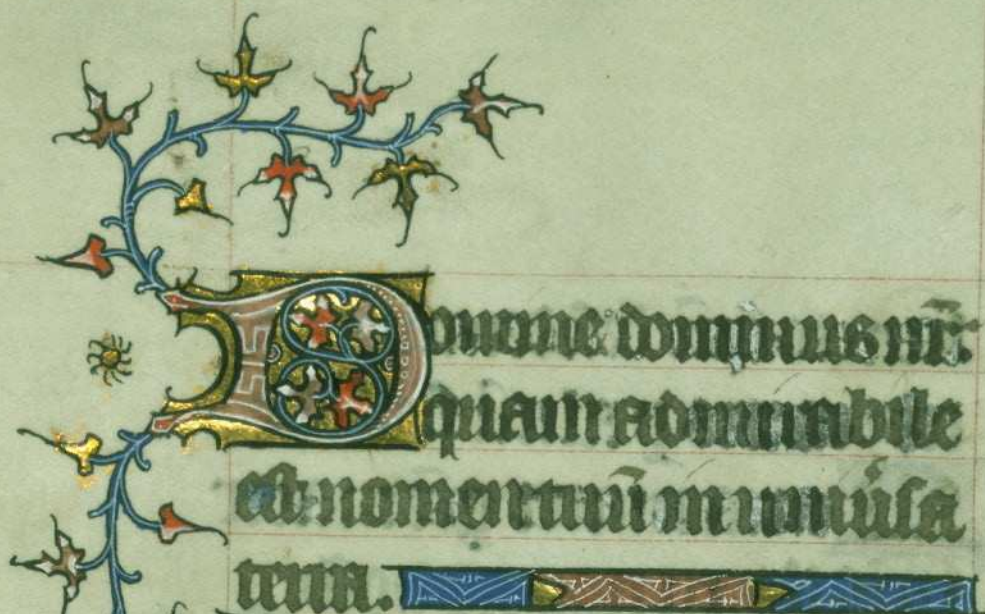 Domine dominus nr̄:
quam admirabile
est nomen tuū in uniũsa
terra.